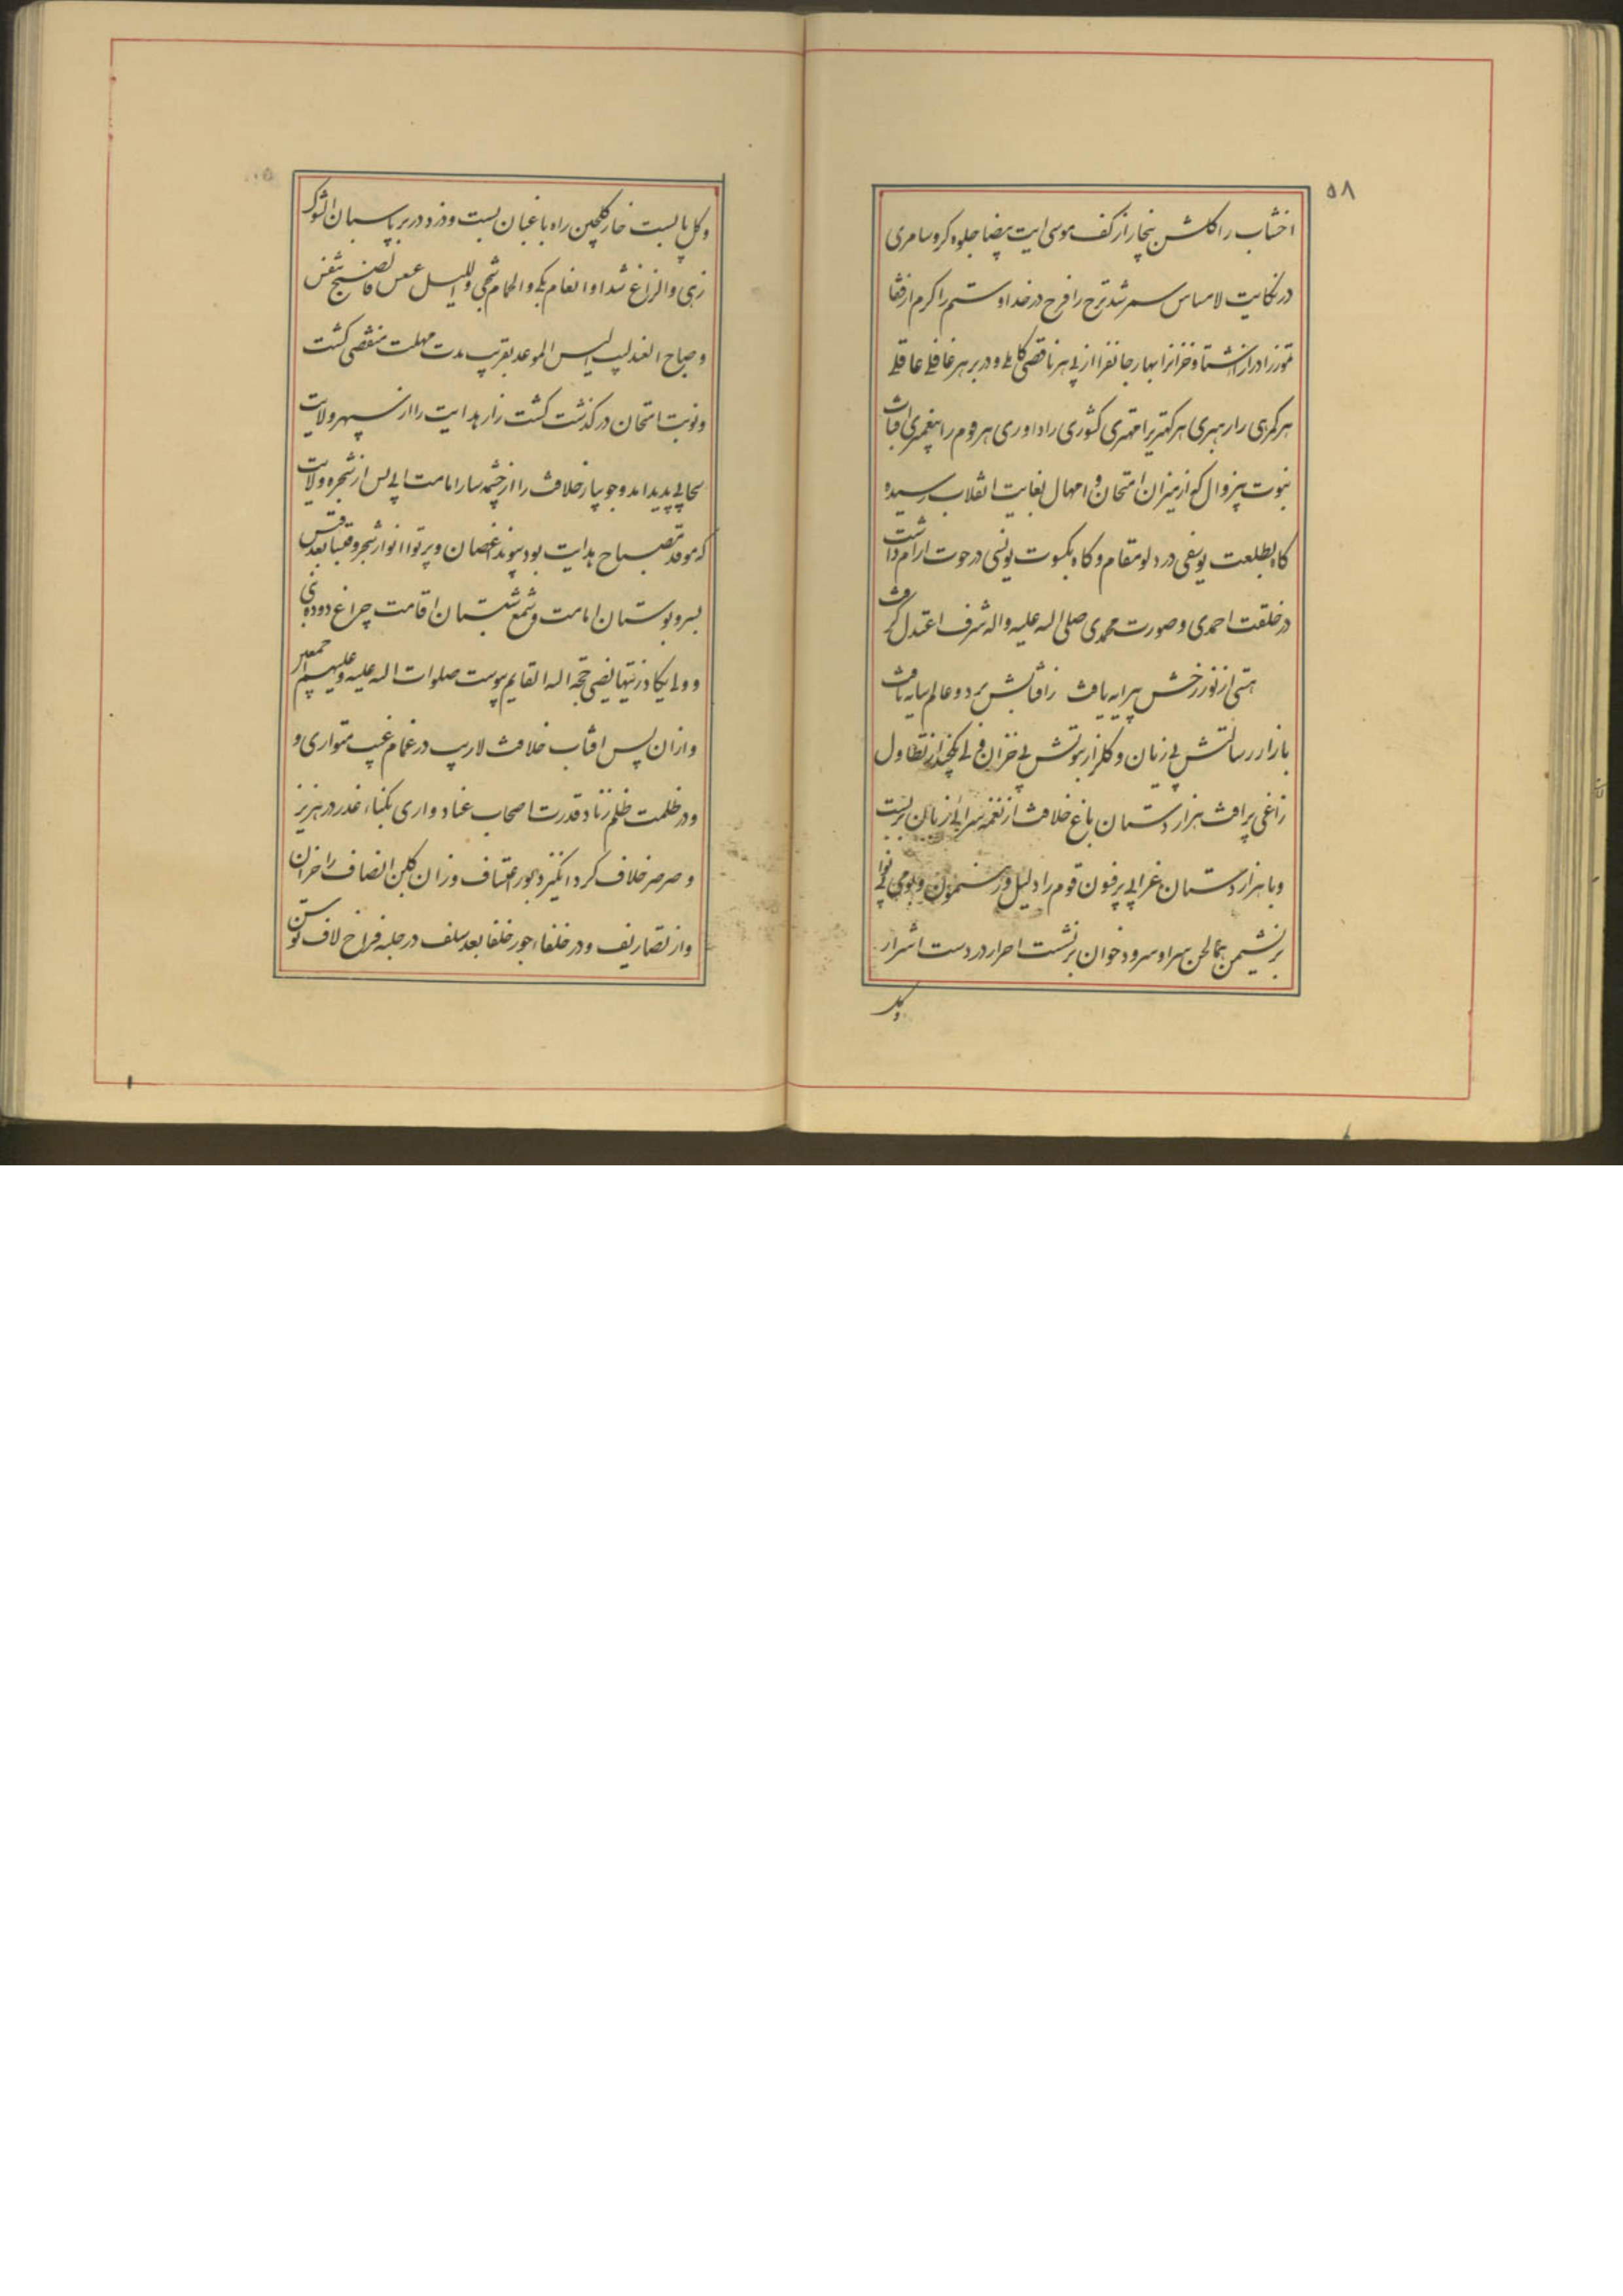 ۵۸
اخشاب را گلشن بخار از کف موسی ایت بیضا جلوه کرد سامری
در نکایت لامساس سمر شد ترح را فرح در خدا و ستم را کرم از قفا
تموز را در از شتا و خزانرا بهار جانفزا از پی هر ناقصی کاملی و در بر هر غافلی عاقلی
هر گمرهی را رهبری هر کهتریرا مهتری کشوری را داوری هر قوم را پیغمبری
نبوت بیزوال که از میزان امتحان و امهال بغایت انقلاب رسیده
گاه بطلعت یوسفی در دلو مقام و گاه بکسوت یونسی در حوت ارام داشت
در خلقت احمدی و صورت محمدی صلی اله علیه و اله شرف اعتدال گرفت
هستی از نور رخش پیرایه یافت زافتابش هر دو عالم سایه یافت
بازار رسالتش بی زیان و گلزار نبوتش بی خزان ولی یکچند از تطاول
زاغی پر افت هزار دستان باغ خلافت از نغمه سرائی زبان بربست
و با هزار دستان غرابی پر فنون قوم را دلیل و رهنمون و بومی
بر نشیمن همالحن سرا و سرود خوان برنشست احرار در دست اشرار
و گل
و گل پا بست خار گلچین راه باغبان بست و دزد در بر پاسبان الشوک
زهی والزاغ شدا والغام بکی والحمام شجی واللیل عسعس فالصبح تنفس
و صاح العندلیب الیس الموعد بقریب مدت مهلت منقضی گشت
و نوبت امتحان در گذشت کشت زار هدایت را از سپهر ولایت
سحابی پدید امد و جویبار خلافت را از چشمه سار امامت ابی پس از شجره ولایت
که موقد مصباح هدایت بود پیوند اغصان و پرتو انوار شجر و قبسا بعد قبس
بسرو بوستان امامت و شمع شبستان اقامت چراغ دوده
و ولایکاد زیتها یضئ حجة اله القایم پیوست صلوات اله علیه و علیهم اجمعین
و از ان پس افتاب خلافت لاریب در غمام غیب متواری و
و در ظلمت ظلم زناد قدرت اصحاب عناد واری نکباء غدر در هزیز
و صرصر خلاف گرد انگیز دبور اعتساف وزان گلبن انصاف را خزان
و از تصاریف و در خلفا اجور خلفا بعد سلف در جلبه فراخ لاف